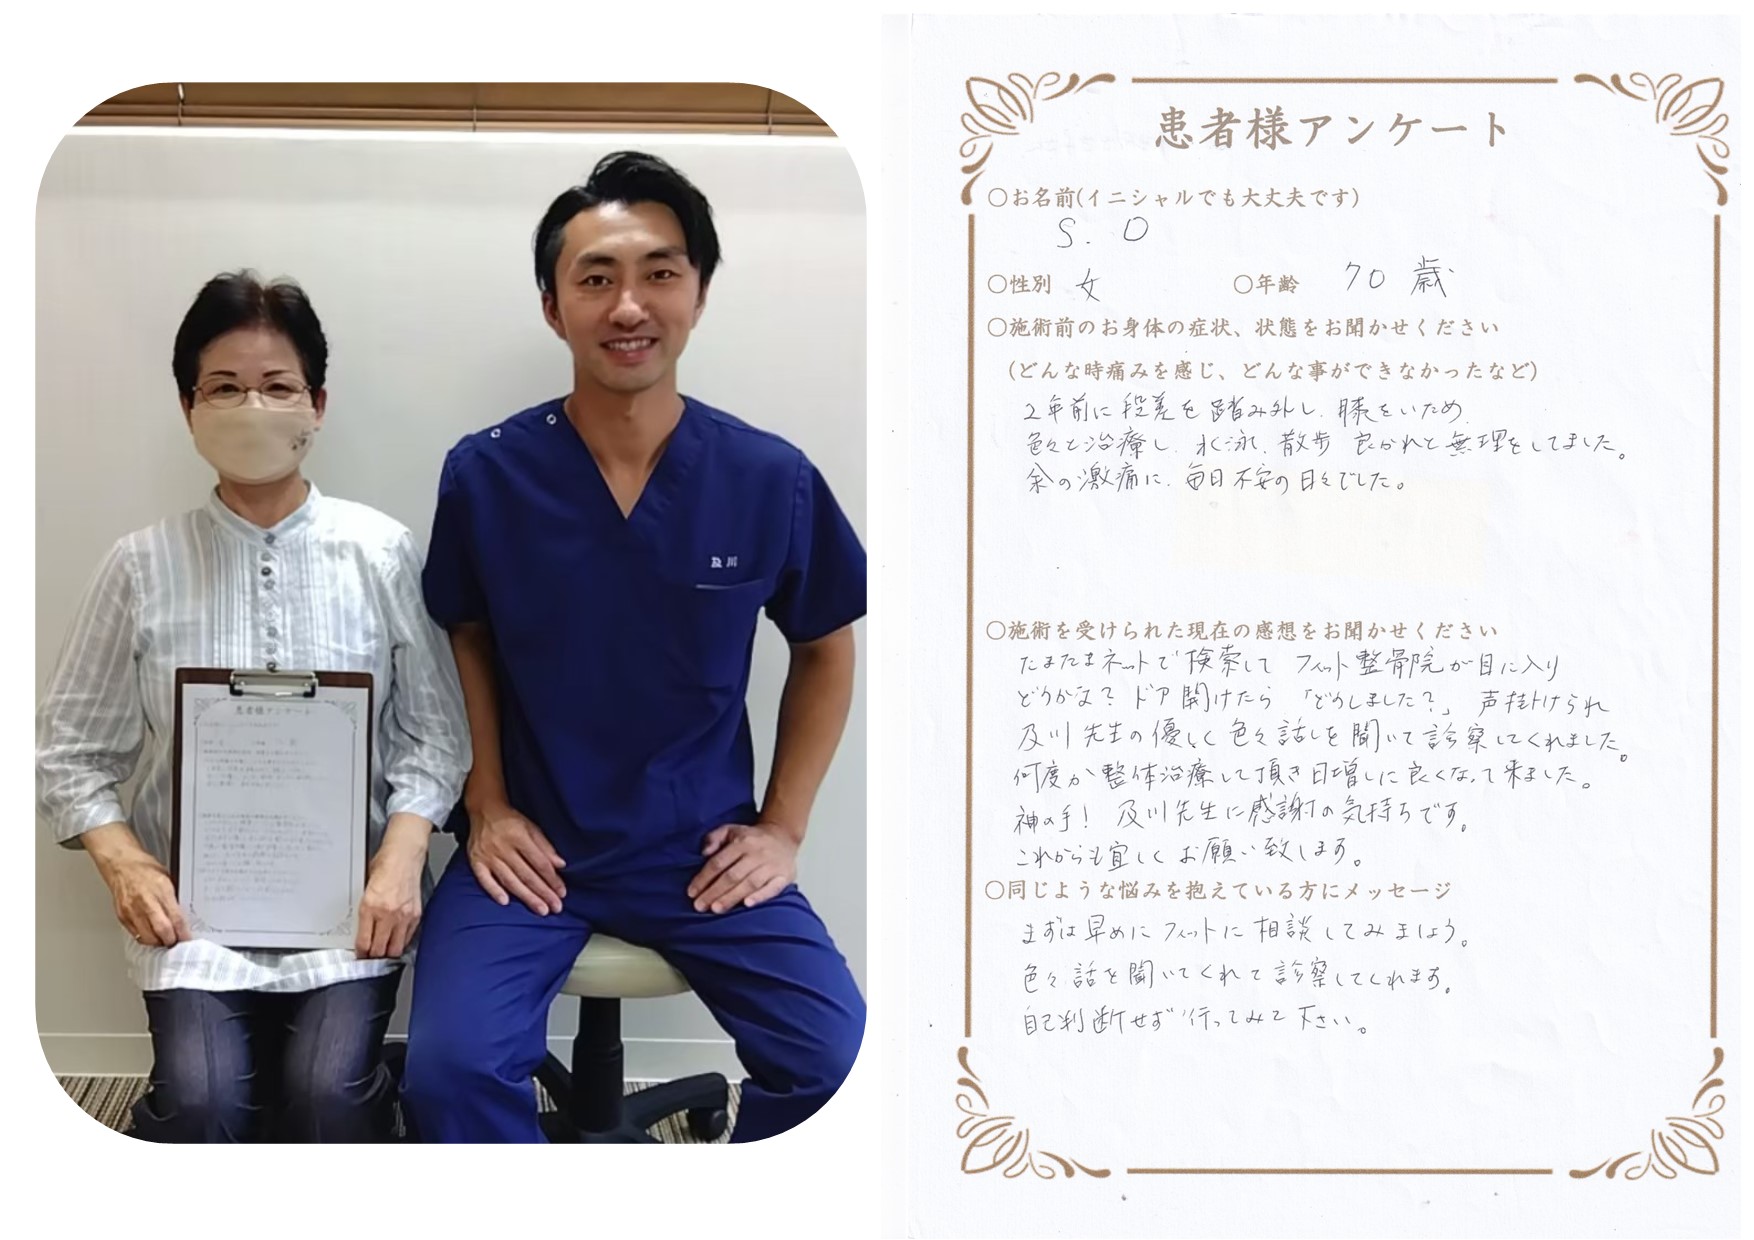 及川
患者様アンケート
患者様アンケート
○お名前(イニシャルでも大丈夫です)
S. O
○性別 女 ○年齢 70 歳
○施術前のお身体の症状、状態をお聞かせください
(どんな時痛みを感じ、どんな事ができなかったなど)
2年前に段差を踏み外し、膝をいため
色々と治療し、水泳、散歩 良かれと無理をしてました。
余の激痛に、毎日不安の日々でした。
○施術を受けられた現在の感想をお聞かせください
たまたまネットで検索して フィット整骨院が目に入り
どうかな? ドア開けたら 「どうしました?」 声掛けられ
及川先生の優しく色々話しを聞いて診察してくれました。
何度か整体治療して頂き日増しに良くなって来ました。
神の手! 及川先生に感謝の気持ちです。
これからも宜しくお願い致します。
○同じような悩みを抱えている方にメッセージ
まずは早めにフィットに相談してみましょう。
色々話を聞いてくれて診察してくれます。
自己判断せず行ってみて下さい。